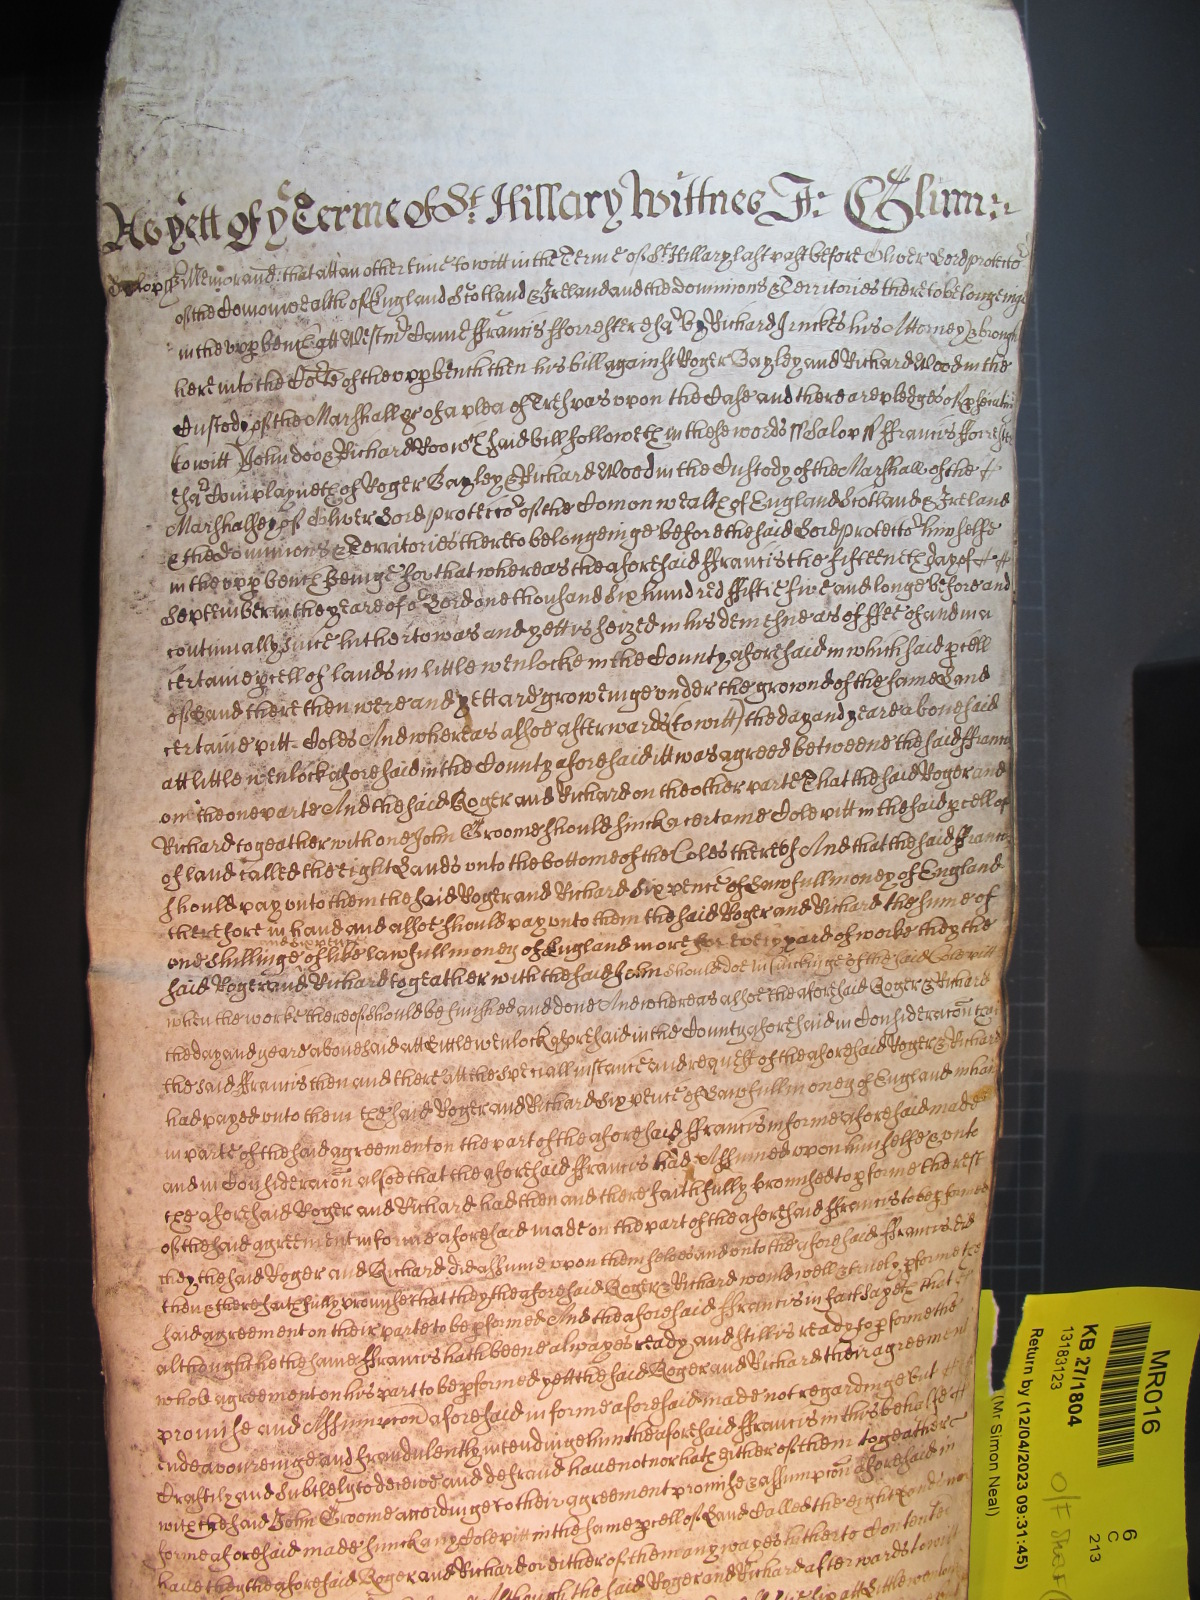 As yett of ye Terme of St: Hillary Wittnes J: Glinn:
Salop ss Memorand: that att an other time to witt in the Terme of St Hillary last past before Oliver Lord protector
of the Comonwealth of England Scotland & Ireland and the dominions & Territories thereto belongeinge
in the upp bench att Westmr Came ffrancis fforrester esqr by Richard Jinckes his Attorney & brought
here into the Cort of the upp bench then his bill against Roger Bayley and Richard Wood in the
Custody of the Marshall &c of a plea of Trespas upon the Case and there are pledges of
to witt John doo & Richard Roo wch said bill followeth in these words ss Salop ss ffrancis fforrester
esqr Complayneth of Roger Bayley & Richard Wood in the Custody of the Marshall of the
Marshalsey of Oliver Lord protector of the Comonwealth of England Scotland & Ireland
& the dominions & Territories thereto belongeinge before the said Lord protector himselfe
in the upp bench beinge for that whereas the aforesaid ffrancis the fifteenth day of
September in the yeare of or Lord one thousand six hundred fiftie five and longe before and
continually since hitherto was and yett is seized in his demesne as of ffee of and in a
certaine pcell of lands in little wenlocke in the County aforesaid in which said pcell
of Land there then were and yett are groweinge under the grownd of the same Land
certaine pitt-Coles And whereas alsoe afterwards (to witt) the day and yeare abovesaid
att little wenlock aforesaid in the County aforesaid itt was agreed betweene the said ffrancis
on the one parte And the said Roger and Richard on the other parte That the said Roger and
Richard togeather with one John Groome should sincke a certaine Colepitt in the said pcell of
of land called the eight Lands unto the bottome of the Coles thereof And that the said ffrancis
should pay unto them the said Roger and Richard six pence of Lawfull money of England
therefore in hand and alsoe should pay unto them the said Roger and Richard the sume of
one shillinge and six pence of like lawfull money of England more for every yard of worke they the
said Roger and Richard togeather with the said John should doe in sinckinge of the said Colepitt
when the worke thereof should be finished and done And whereas alsoe the aforesaid Roger & Richard
the day and yeare abovesaid att Little wenlock aforesaid in the County aforesaid in Consideracon that
the said ffrancis then and there att the speciall instance and request of the aforesaid Roger & Richard
had payed unto them the said Roger and Richard six pence of Lawfull money of England in hand
in parte of the said agreement on the part of the aforesaid ffrancis in forme aforesaid made
and in Consideracon alsoe that the aforesaid ffrancis had Assumed upon himselfe & unto
the aforesaid Roger and Richard had then and there faithfully promised to pforme the rest
of the said agreement in forme aforesaid made on the part of the aforesaid ffrancis to be pformed
they the said Roger and Richard did assume upon themselves and unto the aforesaid ffrancis did
then & there faithfully promise that they the aforesaid Roger & Richard would well & truely pforme the
said agreement on their parte to be pformed And the aforesaid ffrancis in fact sayeth that
although he the same ffrancis hath beene alwayes ready and still is ready to pforme the
whole agreement on his part to be pformed yett the said Roger and Richard their agreement
promise and Assumpcon aforesaid in forme aforesaid made not regardinge but
endeavoureinge and fraudulently intendinge him the aforesaid ffrancis in this behalfe
Craftily and subtlely to deceive and defraud have not nor hath either of them togeather
with the said John Groome accordinge to their agreement promise & assumpcon aforesaid in
forme aforesaid made sunck any Colepitt in the same pcell of Land Called the eight Lands
have they the aforesaid Roger and Richard or either of them any wayes hitherto Contented
Although the said Roger and Richard afterwards to witt
att Little wenlock
MR016
KB 27/1804
13183123
Return by (12/04/2023 09:31:45)
(Mr Simon Neal)
6
C
213